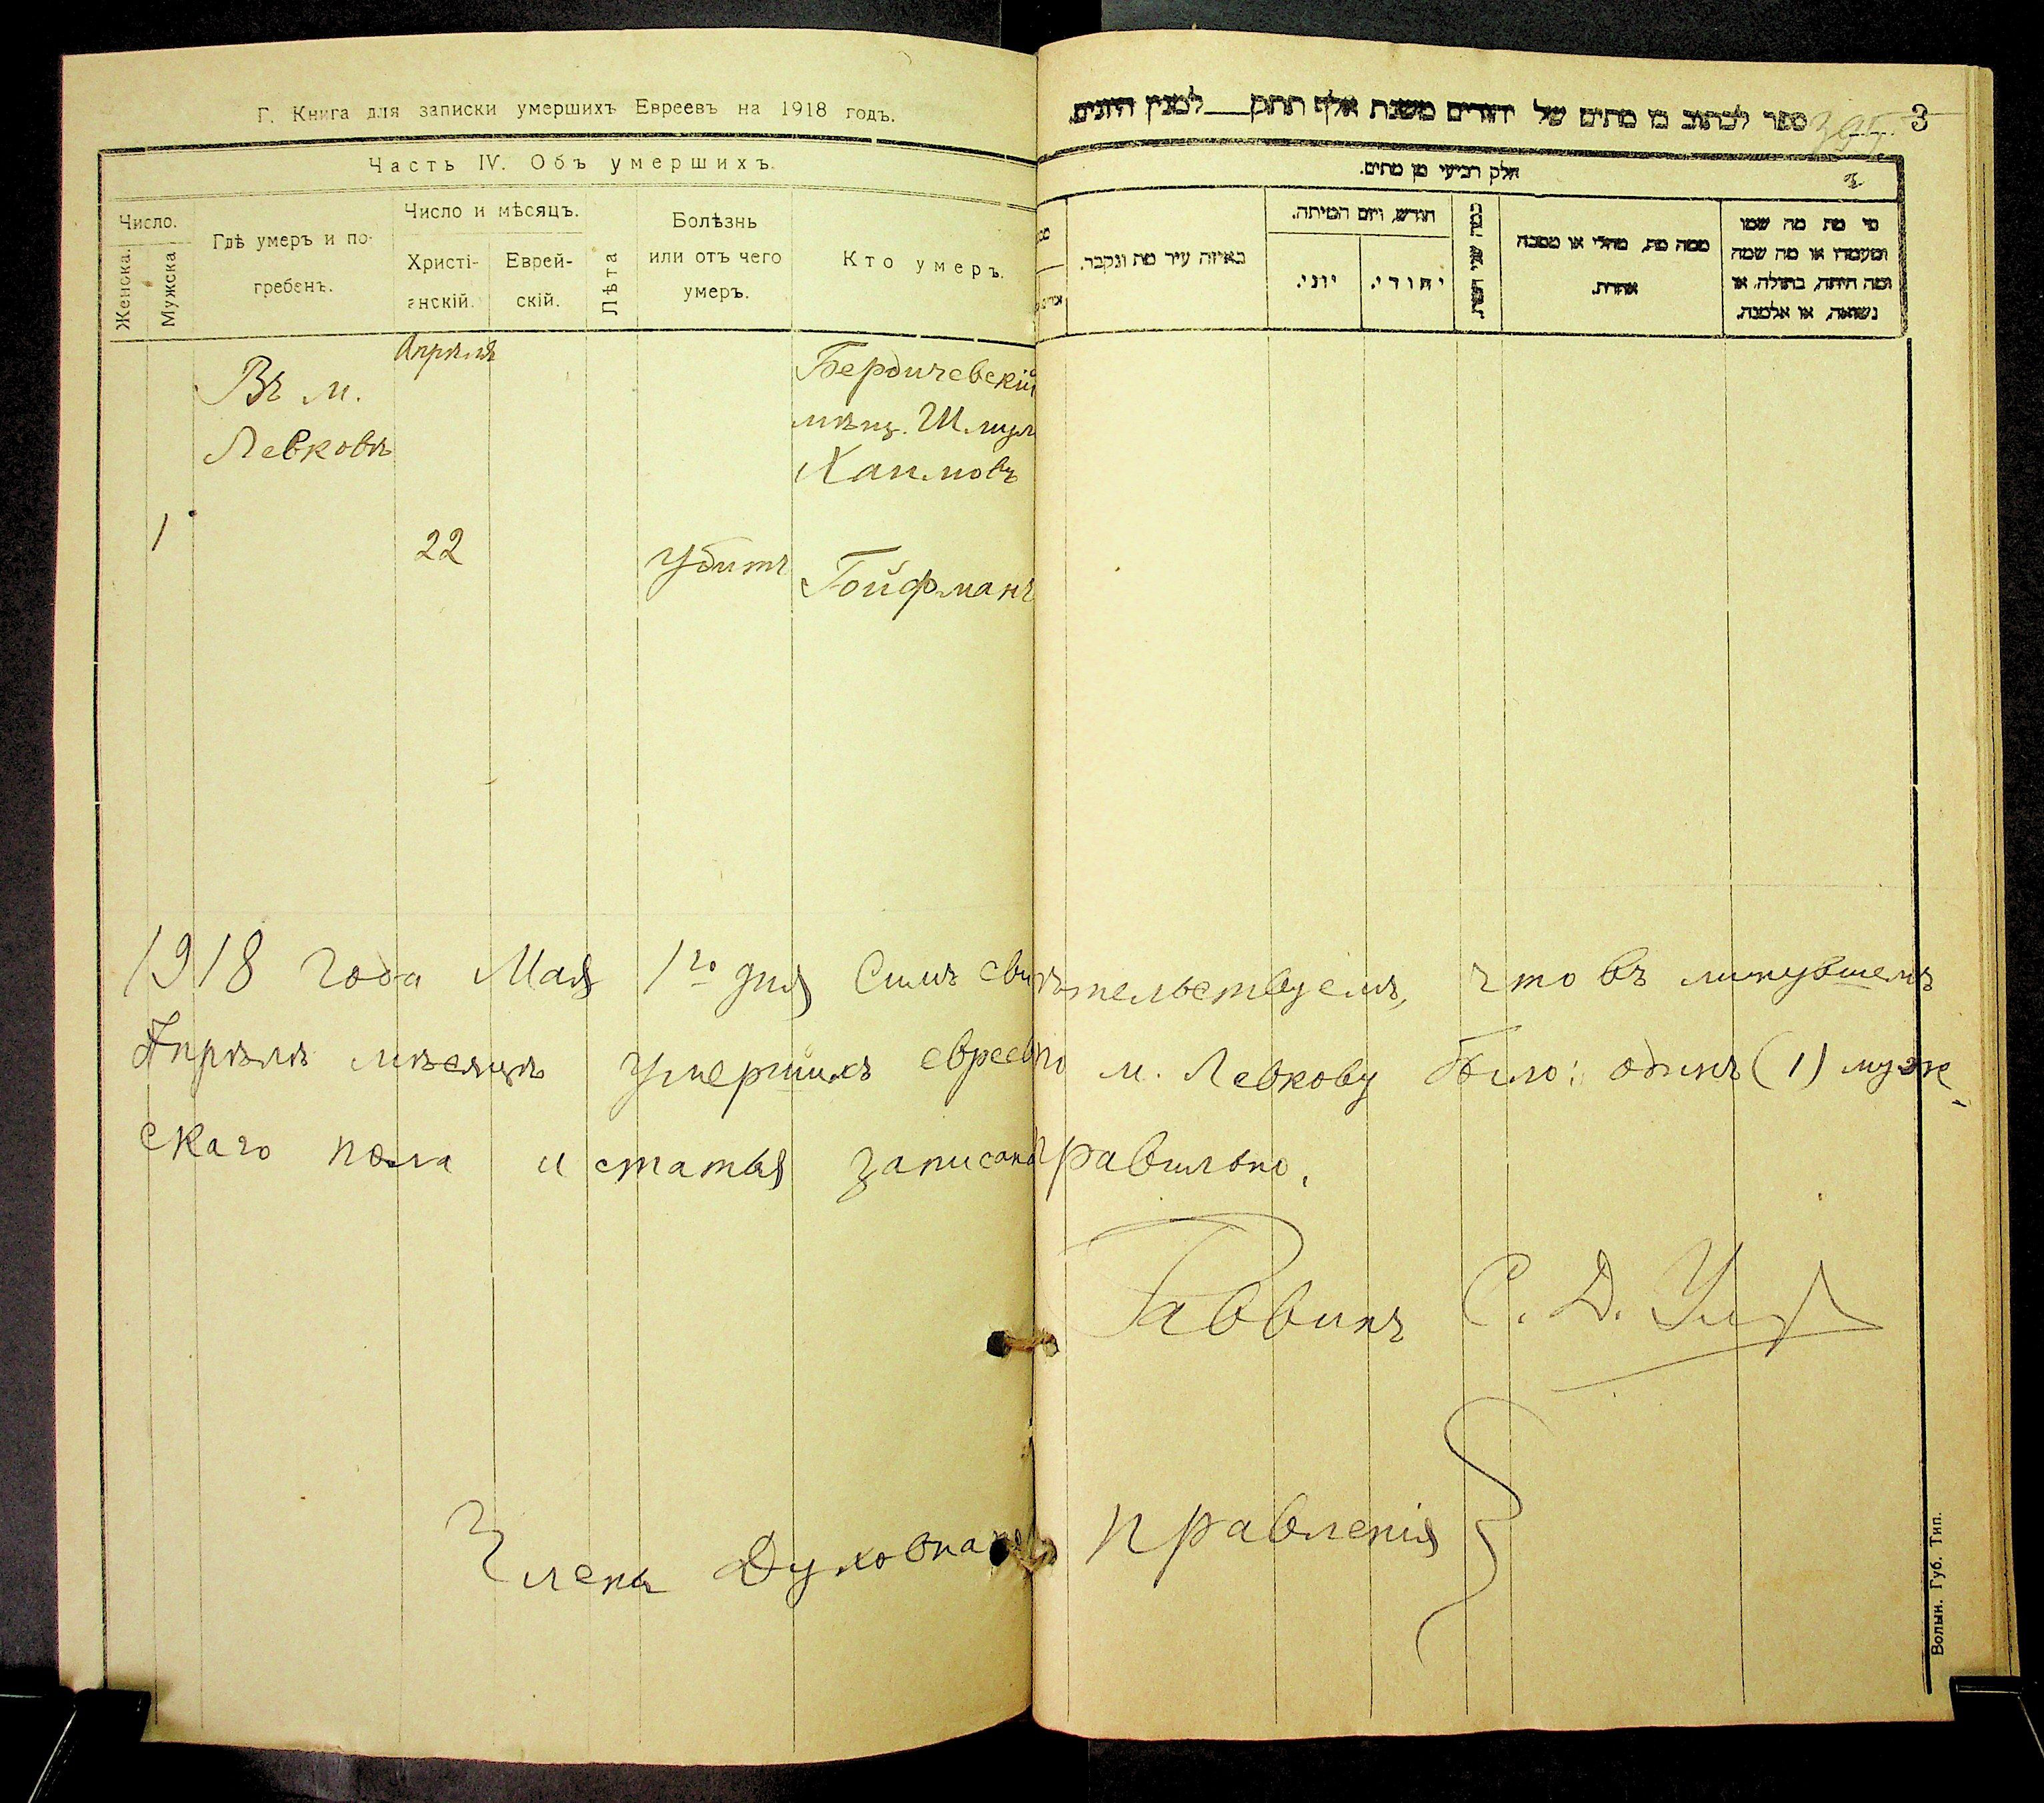 Г. Книга для записки умершихъ Евреевъ на 1918 годъ.
Часть IV. Объ умершихъ.
Число.
Женска.
Мужска
Гдѣ умеръ и по-
гребенъ.
Число и мѣсяцъ.
Христі-
анскій.
Еврей-
скій.
Лѣта
Болѣзнь
или отъ чего
умеръ.
Кто умеръ.
Въ м.
Левковѣ
Апрѣля
Бердичевскій
мѣщ. Шмул
Хаимовъ
1
22
Убитъ
Гойфманъ
ספר לכתוב מן מתים של יהודים משנת אלף תתקן למנין היונים.
395
3
חלק רביעי מן מתים.
2
באיזה עיר מת ונקבר.
חודש, ויום המיתה.
יוני.
יהודי.
כמה שני
ממה מת, מחלי או מסבה
אחרת.
מי מת מה שמו
ומעמדו או מה שמה
ומה היתה, בתולה, או
נשואה, או אלמנה.
1918 года Мая 1го дня Симъ свидѣтельствуемъ, что въ минувшемъ
Апрѣлѣ мѣсяцѣ умершихъ евреевъ по м. Левкову было: одинъ (1) муже-
скаго пола и статья записана правильно.
Раввинъ С. Д.
Члены Духовнаго правленія
Волын. Губ. Тип.